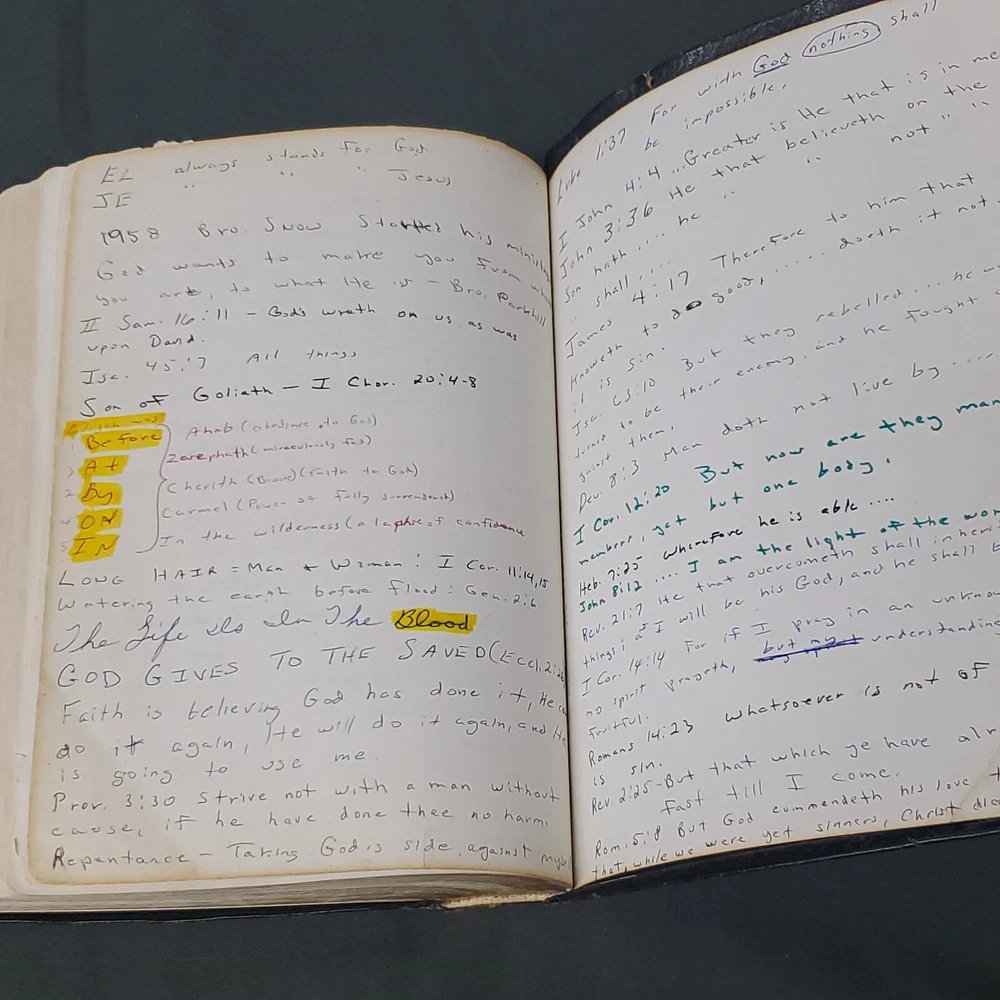 EL always stands for God
JE " " " Jesus
1958 Bro. Snow Started his ministry
God wants to make you from what
you are, to what He is - Bro. Parkhill
II Sam. 16:11 - God's wrath on us as was
upon David.
Isa. 45:7 All things
Son of Goliath - I Chor. 20:4-8
Elijah was
1 Before Ahab (obedience to God)
3 At Zarephath (miraculously fed)
2 By Cherith (Brook) (faith to God)
4 ON Carmel (Power of fully surrendered)
5 IN In the wilderness (a lapse of confidence
LONG HAIR = Man & Woman: I Cor. 11:14,15
Watering the earth before flood: Gen. 2:6
The Life Is In The Blood
GOD GIVES TO THE SAVED (Eccl. 2:26
Faith is believing God has done it, He can
do it again, He will do it again, and He
is going to use me.
Prov. 3:30 Strive not with a man without
cause, if he have done thee no harm.
Repentance - Taking God's side against myself
Luke 1:37 For with God nothing shall
be impossible.
I John 4:4 ...Greater is He that is in me
John 3:36 He that believeth on the
Son hath .... he " " not " "
" shall ....
James 4:17 Therefore to him that
knoweth to do good, ..... doeth it not
it is sin.
Isa. 63:10 But they rebelled... he was
turned to be their enemy, and he fought
against them.
Deu. 8:3 Man doth not live by ....
I Cor. 12:20 But now are they many
members, yet but one body.
Heb. 7:25 wherefore he is able ....
John 8:12 .... I am the light of the world
Rev. 21:7 He that overcometh shall inherit
things & I will be his God, and he shall b
I Cor. 14:14 For if I pray in an unknown
my spirit prayeth, but my understanding
fruitful.
Romans 14:23 whatsoever is not of
is sin.
Rev. 2:25 - But that which ye have alr
fast till I come.
Rom. 5:8 But God commendeth his love t
that, while we were yet sinners, Christ died